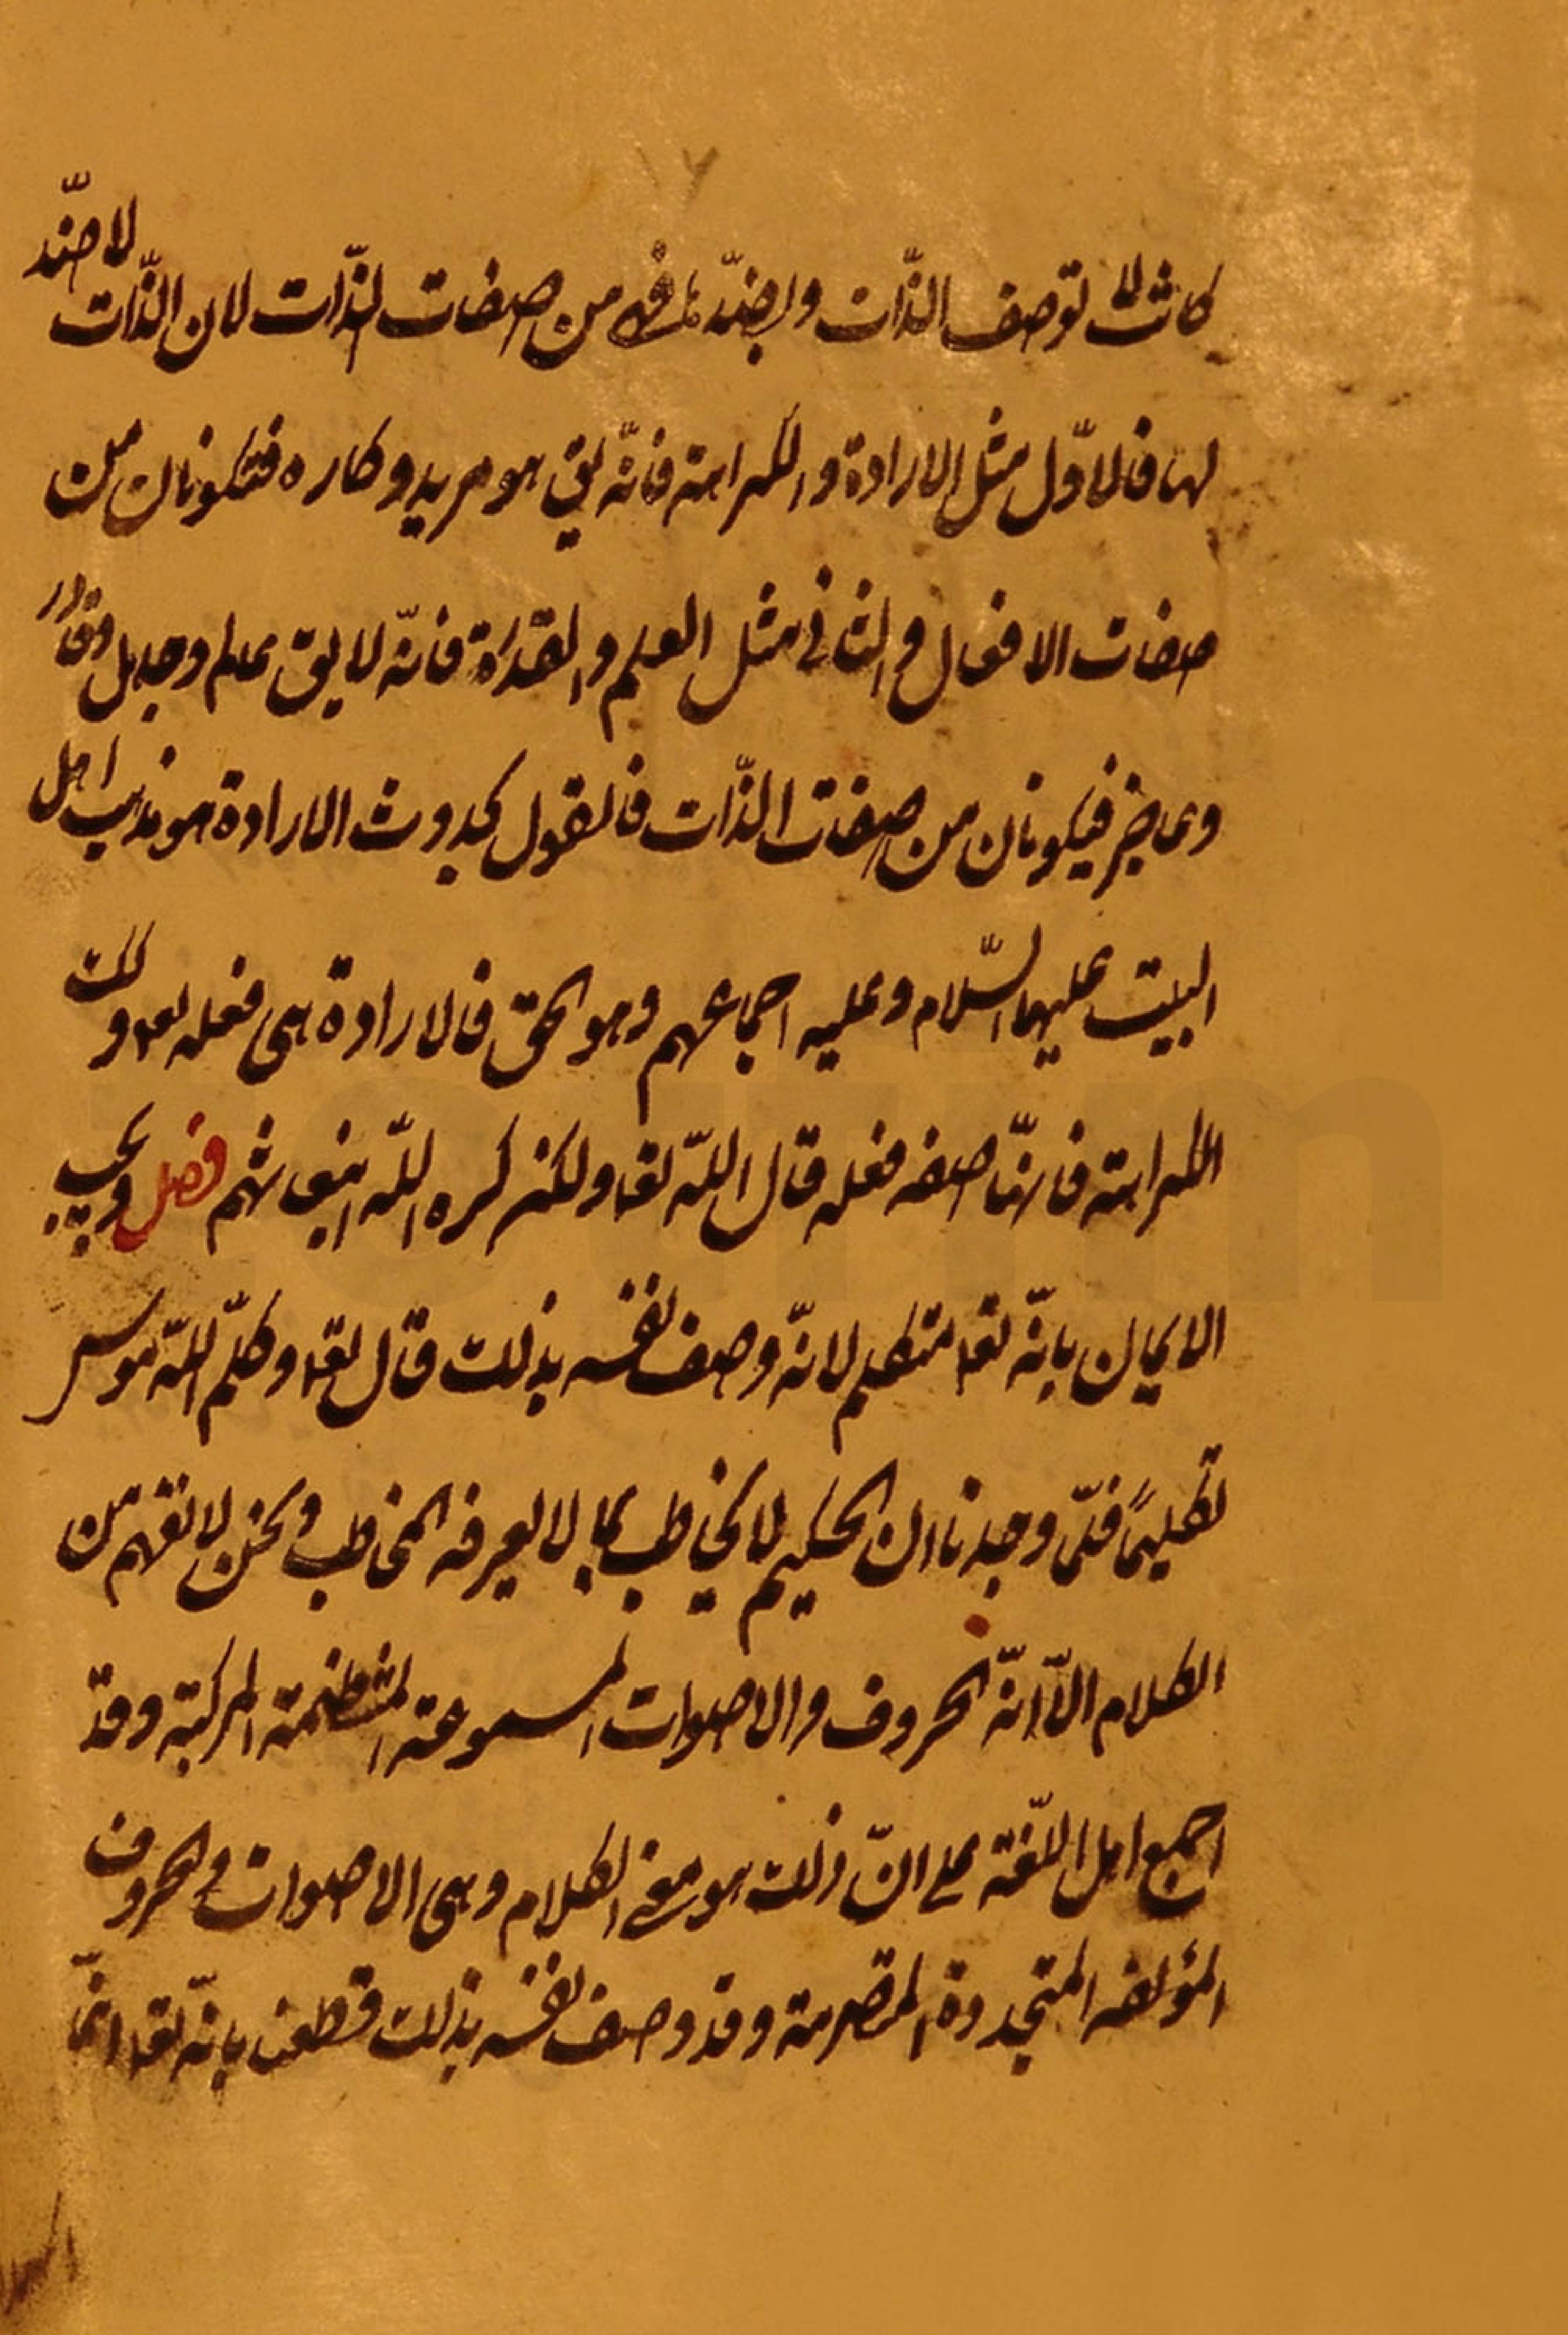 ١٦
كانت لا توصف الذّات وبضدّها فهى من صفات الذّات لان الذّات لا ضدّ
لها فالاوّل مثل الارادة والكراهة فانّه يق هو مريد وكاره فتكونان من
صفات الافعال والثانى مثل العلم والقدرة فانّه لا يق عالم وجاهل وقادر
وعاجز فيكونان من صفات الذّات فالقول بحدوث الارادة هو مذهب اهل
البيت عليهم السّلام وعليه اجماعهم وهو الحق فالارادة هى فعله تعا وكك
الكراهة فانهّا صفه فعله قال اللّه تعا ولكن كره اللّه انبعاثهم فصل ويجب
الايمان بانّه تعا متكلم لانّه وصف نفسه بذلك قال تعا وكلّم اللّه موسى
تكليمًا فلمّا وجدنا ان الحكيم لا يخاطب بما لا يعرفه المخاطب ونحن لا نفهم من
الكلام الّا انّه الحروف والاصوات المسموعة المنتظمة المركبة وقد
اجمع اهل اللّغة على انّ ذلك هو معنى الكلام وهى الاصوات والحروف
المؤلفه المتجددة المتصرمة وقد وصف نفسه بذلك قطعنا بانّه تعا انّما